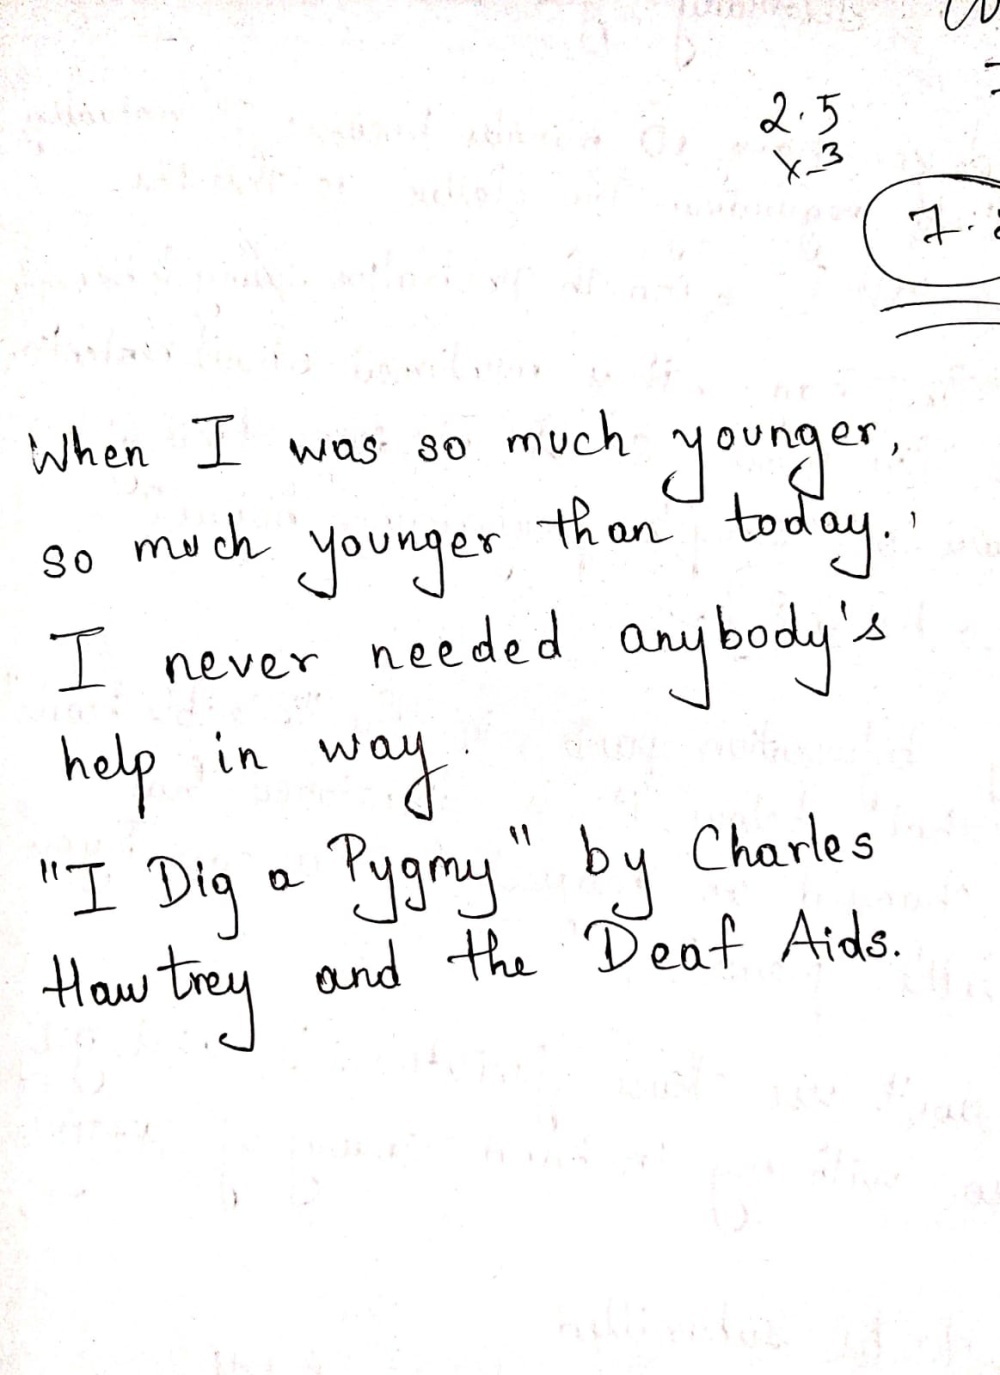 2.5
x 3
7.
When I was so much younger,
so much younger than today.
I never needed anybody's
help in way.
"I Dig a Pygmy" by Charles
Hawtrey and the Deaf Aids.